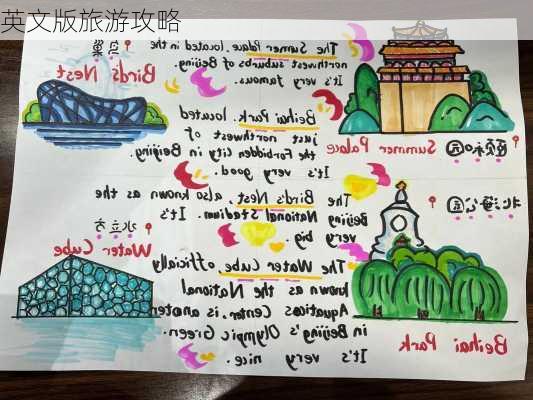 英文版旅游攻略
鸟巢
Bird's Nest
The Sumer Palace, located in the
northwest suburbs of Beijing.
It's very famous.
颐和园
Summer Palace
Beihai Park, located
just northwest of
the Forbidden City in Beijing.
It's very good.
北海公园
Beihai Park
The Bird's Nest, also known as the
Beijing National Stadium. It's
very big.
水立方
Water Cube
The Water Cube, officially
known as the National
Aquatics Center, is
in Beijing's Olympic Green.
It's very nice.